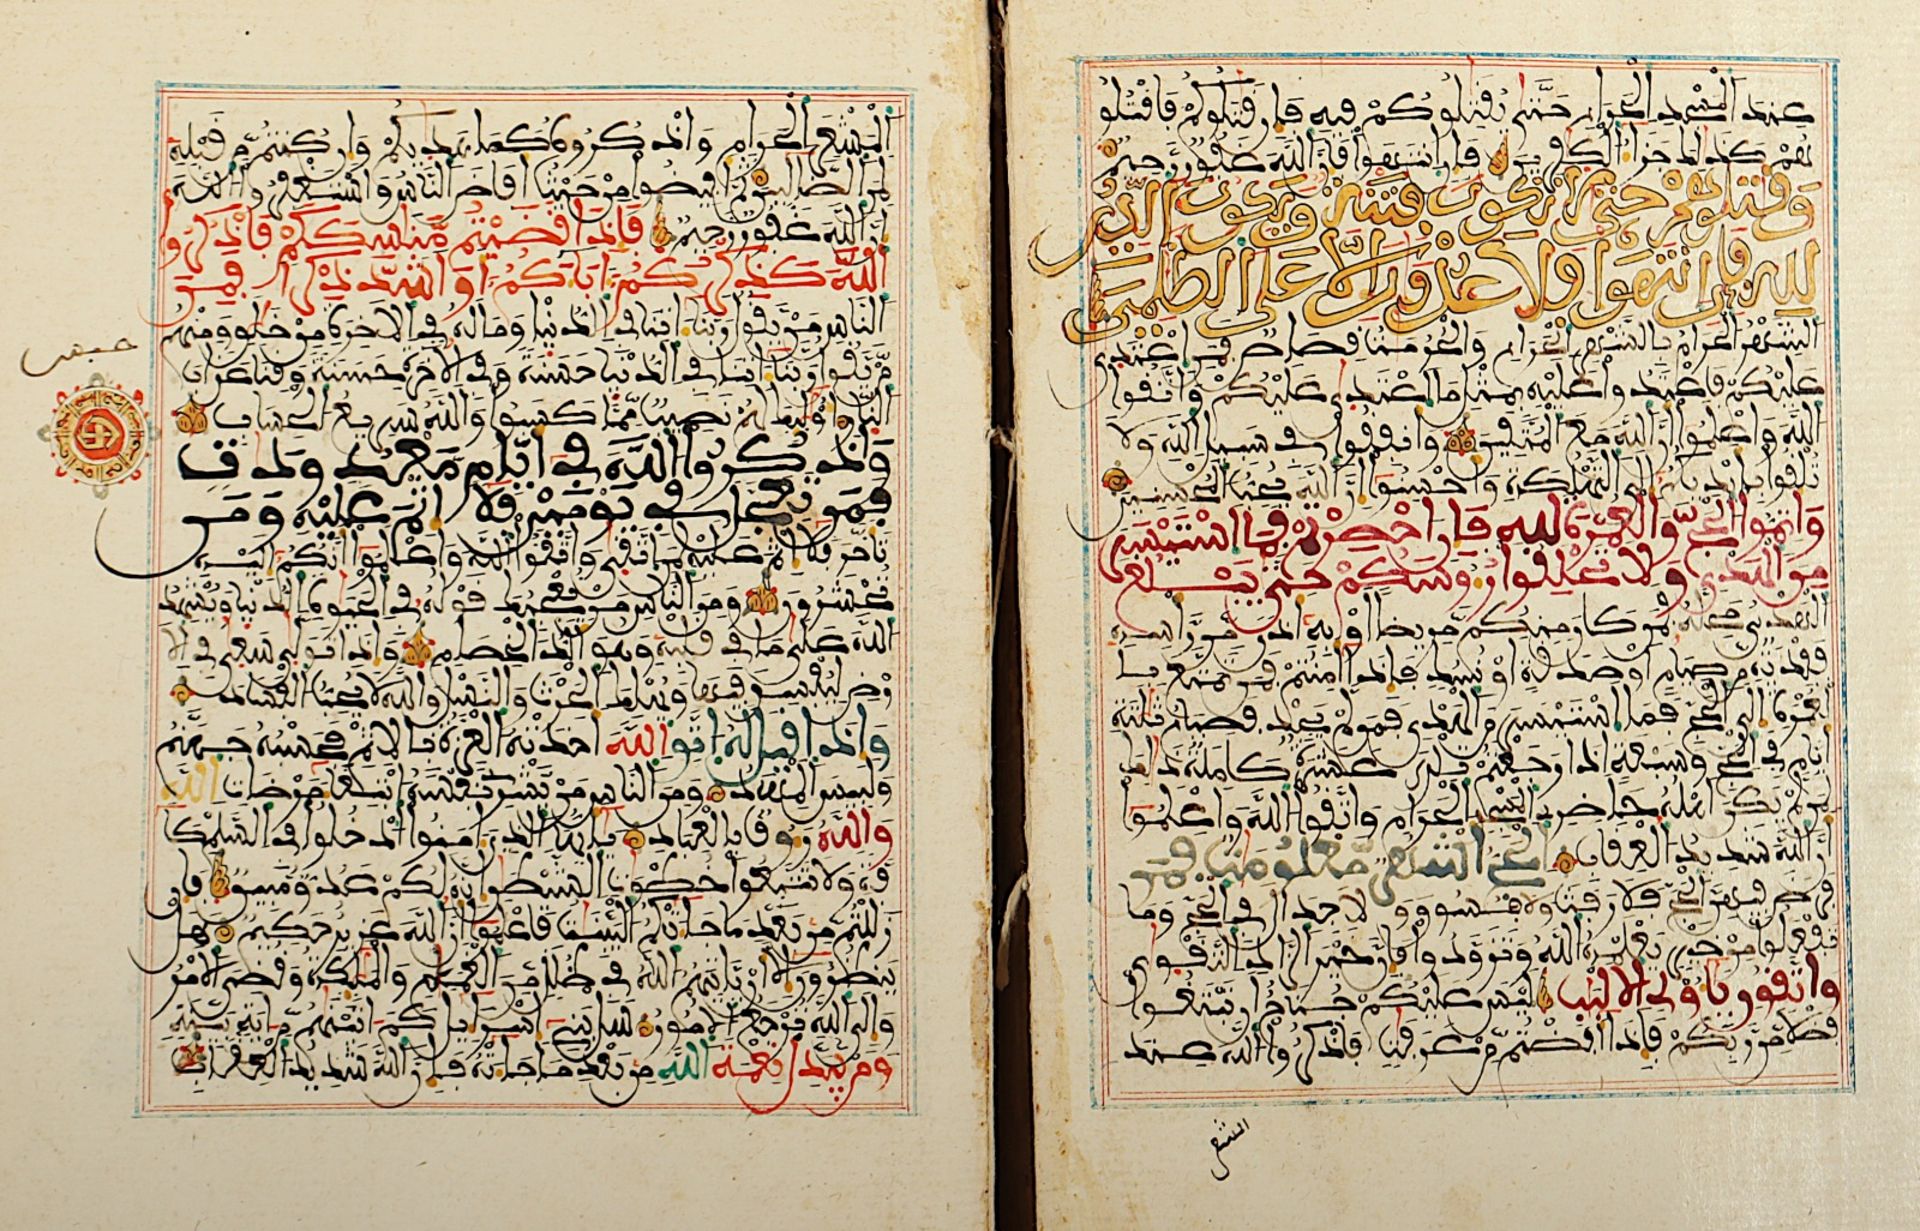 عند المسجد الحرام حتى يقتلوكم فيه فإن قتلوكم فاقتلو
هم كذلك جزاء الكفرين فإن انتهوا فإن الله غفور رحيم
وقتلوهم حتى لا تكون فتنة ويكون الدين
لله فإن انتهوا فلا عدوان إلا على الظلمين
الشهر الحرام بالشهر الحرام والحرمت قصاص فمن اعتدى
عليكم فاعتدوا عليه بمثل ما اعتدى عليكم واتقوا
الله واعلموا أن الله مع المتقين وأنفقوا في سبيل الله ولا
تلقوا بأيديكم إلى التهلكة وأحسنوا إن الله يحب المحسنين
وأتموا الحج والعمرة لله فإن أحصرتم فما استيسر
من الهدي ولا تحلقوا رءوسكم حتى يبلغ
الهدي محله فمن كان منكم مريضا أو به أذى من رأسه
ففدية من صيام أو صدقة أو نسك فإذا أمنتم فمن تمتع با
لعمرة إلى الحج فما استيسر من الهدي فمن لم يجد فصيام ثلثة
أيام في الحج وسبعة إذا رجعتم تلك عشرة كاملة ذلك
لمن لم يكن أهله حاضري المسجد الحرام واتقوا الله واعلموا
أن الله شديد العقاب الحج أشهر معلومت فمن
فرض فيهن الحج فلا رفث ولا فسوق ولا جدال في الحج وما
تفعلوا من خير يعلمه الله وتزودوا فإن خير الزاد التقوى
واتقون يأولي الألبب ليس عليكم جناح أن تبتغوا
فضلا من ربكم فإذا أفضتم من عرفت فاذكروا الله عند
المشعر
المشعر الحرام واذكروه كما هديكم وإن كنتم من قبله
لمن الضالين ثم أفيضوا من حيث أفاض الناس واستغفروا الله
إن الله غفور رحيم فإذا قضيتم منسككم فاذكروا
الله كذكركم ءاباءكم أو أشد ذكرا فمن
الناس من يقول ربنا ءاتنا في الدنيا وما له في الأخرة من خلق ومنهم
من يقول ربنا ءاتنا في الدنيا حسنة وفي الأخرة حسنة وقنا عذاب
النار أولئك لهم نصيب مما كسبوا والله سريع الحساب
واذكروا الله في أيام معدودت
فمن تعجل في يومين فلا إثم عليه ومن
تأخر فلا إثم عليه لمن اتقى واتقوا الله واعلموا أنكم إليه
تحشرون ومن الناس من يعجبك قوله في الحيوة الدنيا ويشهد
الله على ما في قلبه وهو ألد الخصام وإذا تولى سعى في الأ
رض ليفسد فيها ويهلك الحرث والنسل والله لا يحب الفساد
وإذا قيل له اتق الله أخذته العزة بالإثم فحسبه جهنم
ولبيس المهاد ومن الناس من يشري نفسه ابتغاء مرضات الله
والله رءوف بالعباد يأيها الذين ءامنوا ادخلوا في السلم كا
فة ولا تتبعوا خطوت الشيطن إنه لكم عدو مبين فإن
زللتم من بعد ما جاءتكم البينت فاعلموا أن الله عزيز حكيم هل
ينظرون إلا أن يأتيهم الله في ظلل من الغمام والملئكة وقضي الأمر
وإلى الله ترجع الأمور سل بني إسراءيل كم ءاتينهم من ءاية بينة
ومن يبدل نعمة الله من بعد ما جاءته فإن الله شديد العقاب